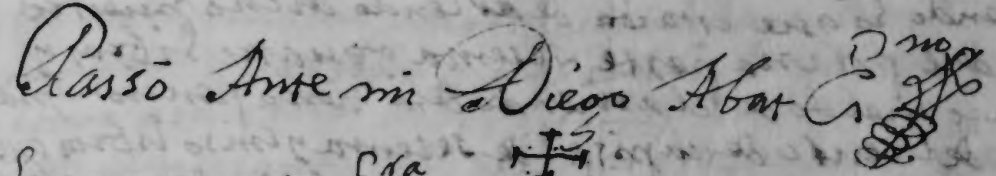 Passó Ante mi Diego Abat Esno